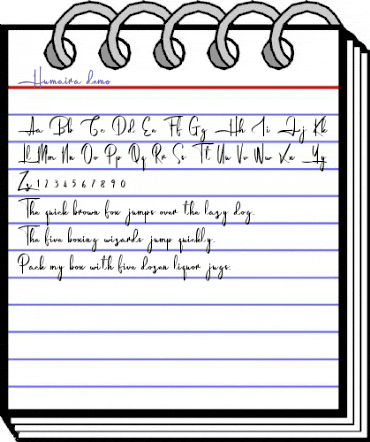 Humaira demo
Aa Bb Cc Dd Ee Ff Gg Hh Ii Jj Kk
Ll Mm Nn Oo Pp Qq Rr Ss Tt Uu Vv Ww Xx Yy
Zz 1 2 3 4 5 6 7 8 9 0
The quick brown fox jumps over the lazy dog.
The five boxing wizards jump quickly.
Pack my box with five dozen liquor jugs.